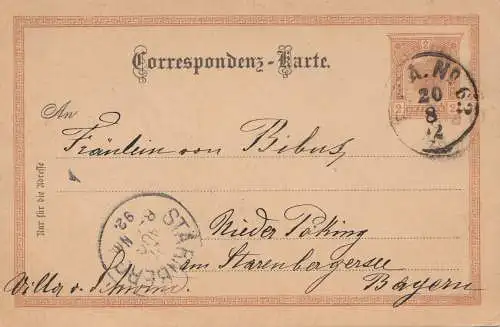 Correspondenz-Karte.
An
Fräulein von Bibus
Nur für die Adresse
Nieder Pöking
am Starenbergersee
Villa v. Schwind
Bayern
2
2
A. No 62
20
8
92
STARNBERG
AUG
92.